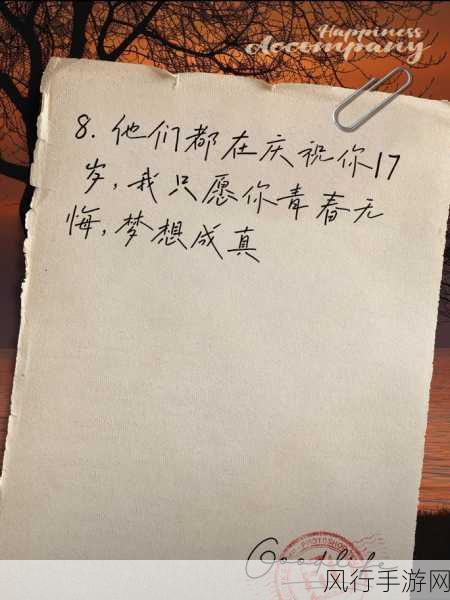 Happiness
Accompany
8. 他们都在庆祝你17
岁,我只愿你青春无
悔,梦想成真
PHOTOSHOP
Goodlife
风行手游网